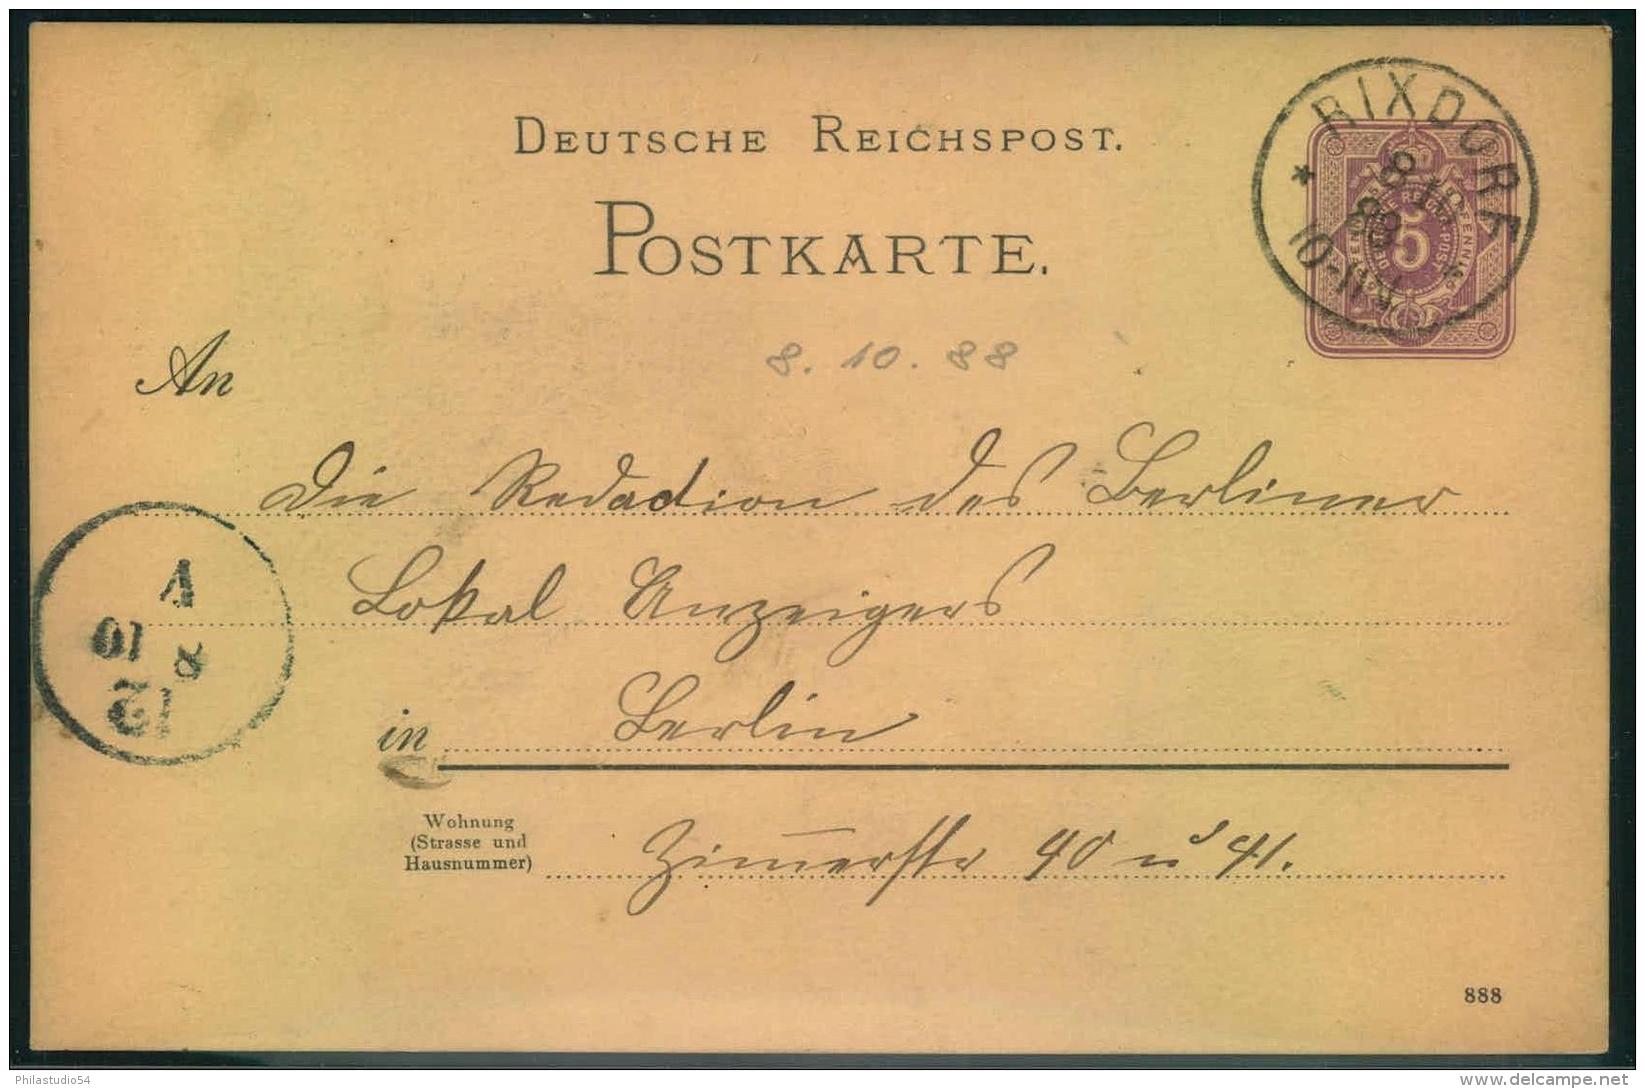 DEUTSCHE REICHSPOST.
POSTKARTE.
RIXDORF
* *
8 10
88
10-11 V.
5
8. 10. 88
An
die Redaction des Berliner
Lokal Anzeigers
in Berlin
Wohnung
(Strasse und
Hausnummer)
Zimerstr 40 u 41.
V
8 10
12
888
Philastudio54
www.delcampe.net